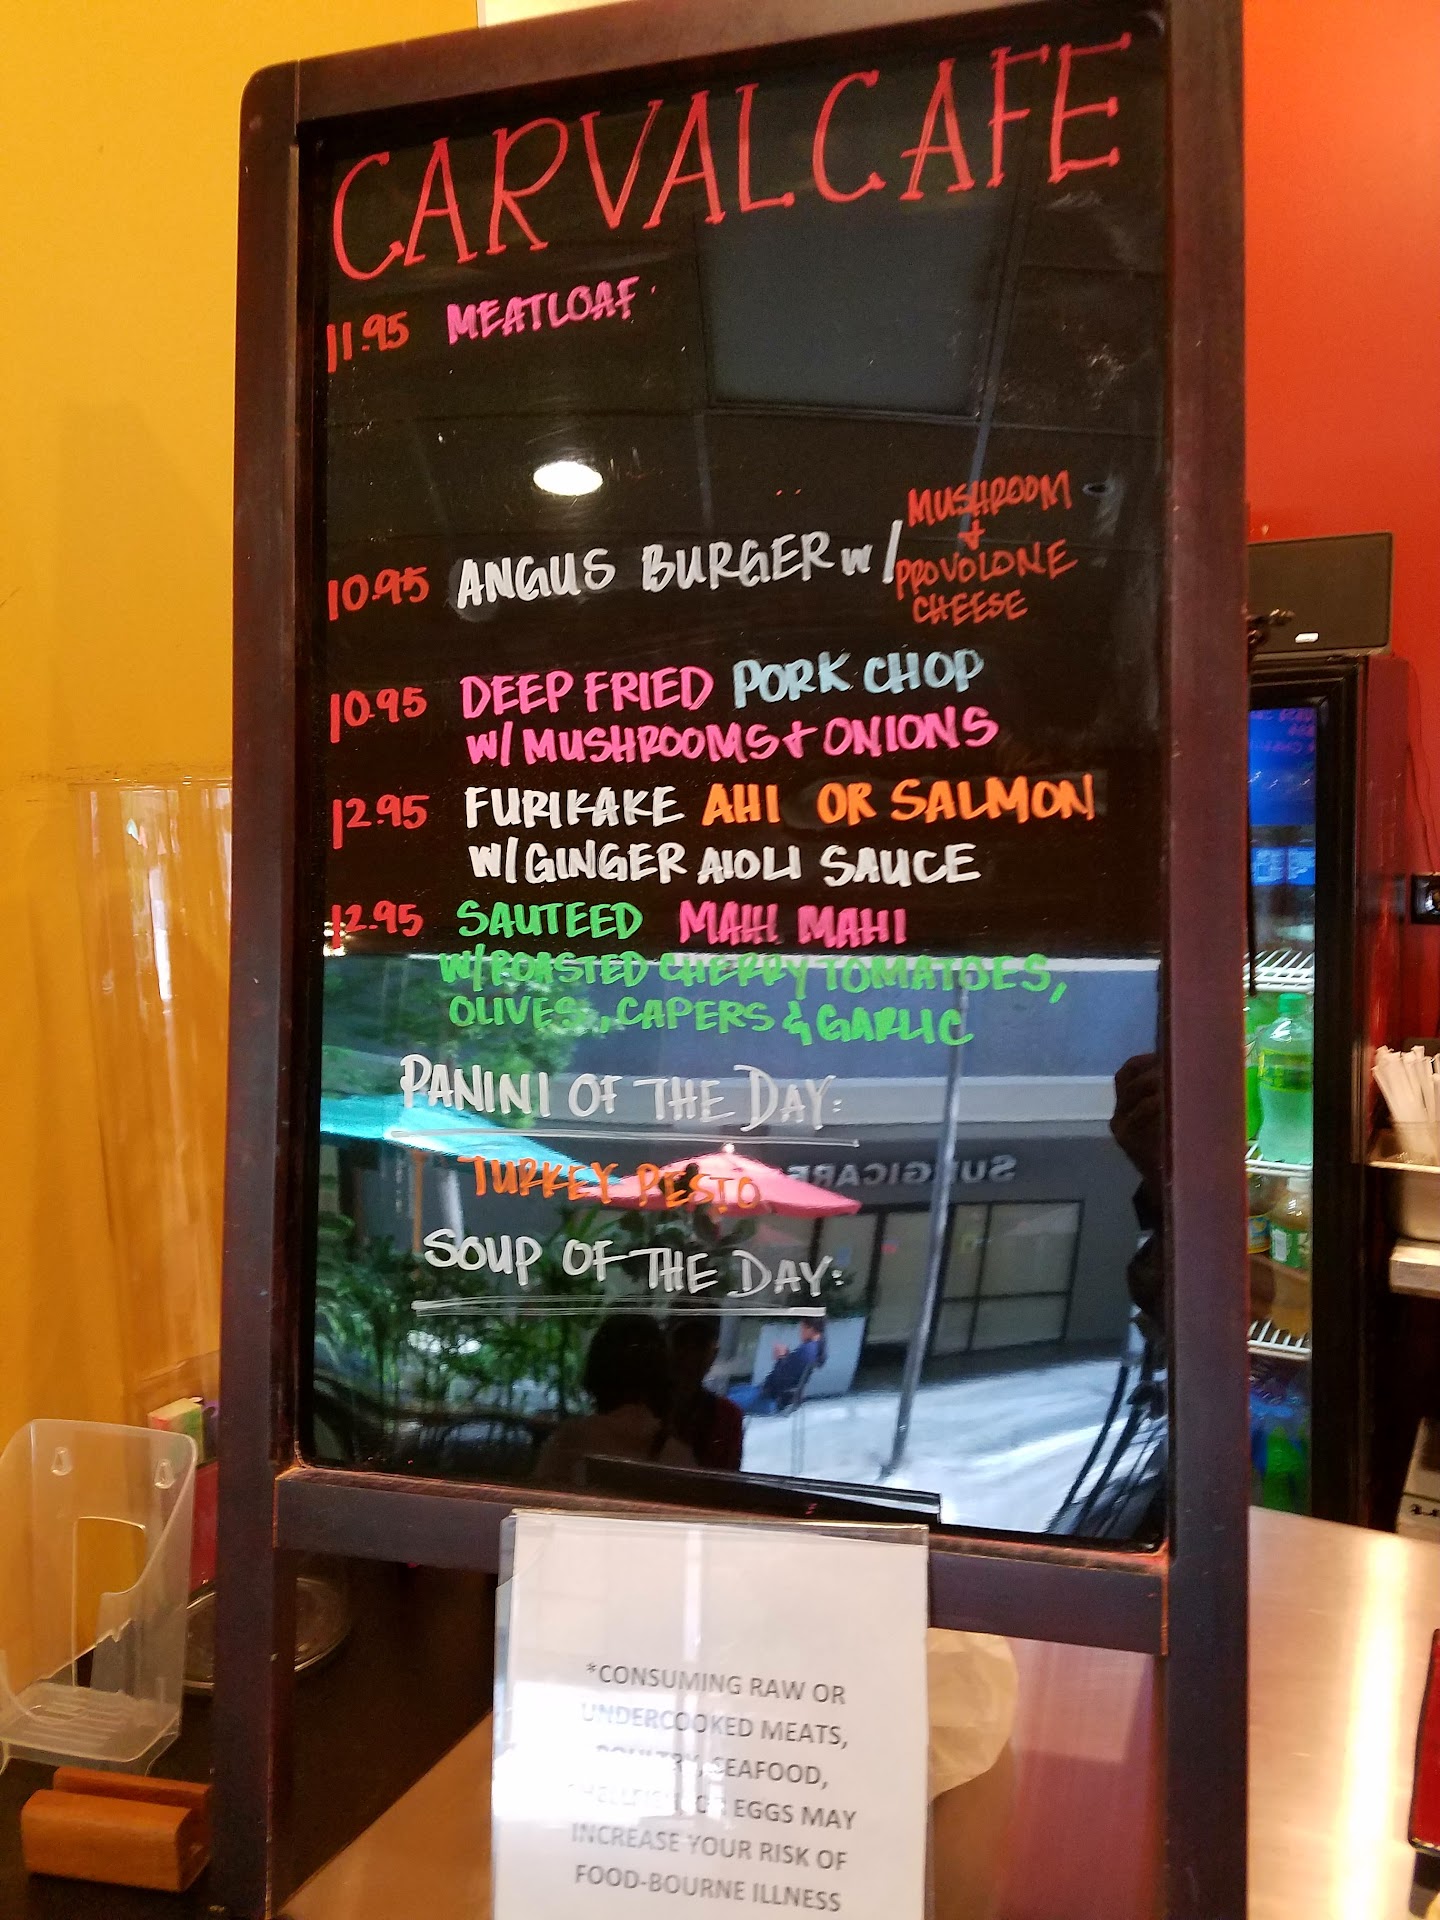 CARVALCAFE
11.95 MEATLOAF
10.95 ANGUS BURGER W/ MUSHROOM
+
PROVOLONE
CHEESE
10.95 DEEP FRIED PORK CHOP
W/ MUSHROOMS + ONIONS
12.95 FURIKAKE AHI OR SALMON
W/ GINGER AIOLI SAUCE
12.95 SAUTEED MAHI MAHI
W/ ROASTED CHERRY TOMATOES,
OLIVES, CAPERS & GARLIC
PANINI OF THE DAY:
TURKEY PESTO
SURGICARE
SOUP OF THE DAY:
*CONSUMING RAW OR
UNDERCOOKED MEATS,
POULTRY, SEAFOOD,
SHELLFISH OR EGGS MAY
INCREASE YOUR RISK OF
FOOD-BOURNE ILLNESS